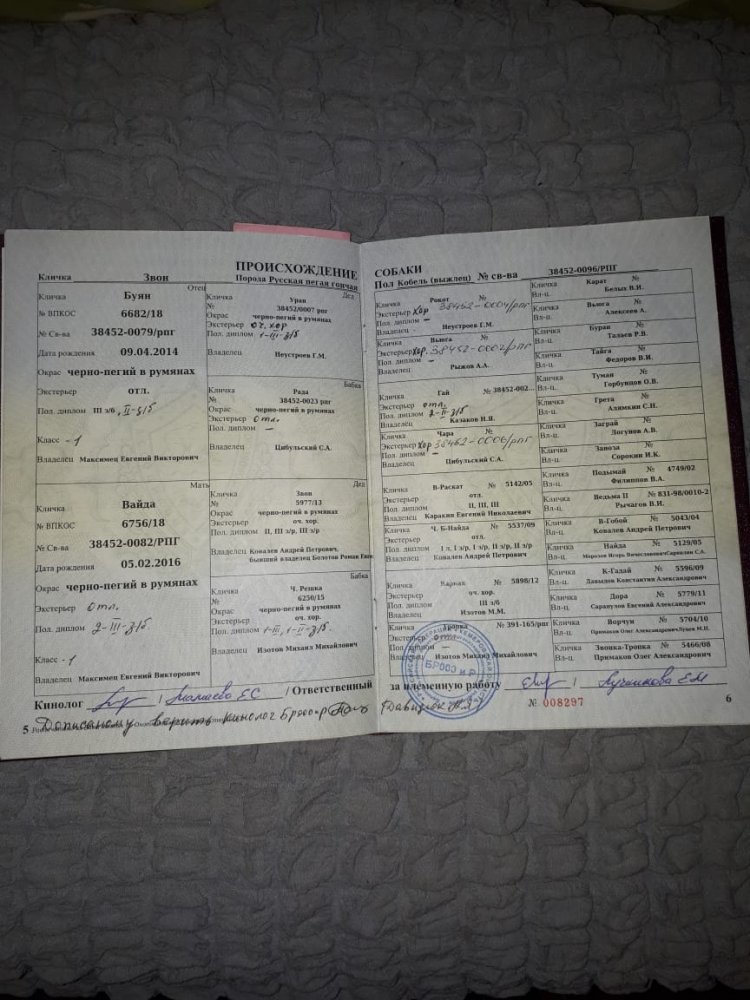 ПРОИСХОЖДЕНИЕ
Кличка Звон Порода Русская пегая гончая
Отец
Кличка Буян
№ ВПКОС 6682/18
№ Св-ва 38452-0079/рпг
Дата рождения 09.04.2014
Окрас черно-пегий в румянах
Экстерьер отл.
Пол. диплом III з/б, II-з/б
Класс - 1
Владелец Максимец Евгений Викторович
Мать
Кличка Вайда
№ ВПКОС 6756/18
№ Св-ва 38452-0082/РПГ
Дата рождения 05.02.2016
Окрас черно-пегий в румянах
Экстерьер отл.
Пол. диплом 2-III-з/б.
Класс - 1
Владелец Максимец Евгений Викторович
Дед
Кличка Уран
№ 38452/0007 рпг
Окрас черно-пегий в румянах
Экстерьер оч. хор
Пол. диплом 1-III-з/б
Владелец Неустроев Г.М.
Бабка
Кличка Рада
№ 38452-0023 рпг
Окрас черно-пегий в румянах
Экстерьер Отл.
Пол. диплом —
Владелец Цибульский С.А.
Дед
Кличка Звон
№ 5977/13
Окрас черно-пегий в румянах
Экстерьер оч. хор.
Пол. диплом II, III з/р, III з/р
Владелец Ковалев Андрей Петрович,
бывший владелец Болотов Роман
Бабка
Кличка Ч. Резвка
№ 6250/15
Окрас черно-пегий в румянах
Экстерьер оч. хор.
Пол. диплом 1-III, 1-II-з/б.
Владелец Изотов Михаил Михайлович
Кинолог / Ответственный
Дописанному верить кинолог
5
СОБАКИ
Пол Кобель (выжлец) № св-ва 38452-0096/РПГ
Кличка Рокот № 38452-0004/рпг
Экстерьер Хор
Пол. диплом —
Владелец Неустроев Г.М.
Кличка Вьюга
Экстерьер Хор. 38452-0002/рпг
Пол. диплом —
Владелец Рыжов А.А.
Кличка Гай № 38452-002...
Экстерьер отл.
Пол. диплом 2-II-з/б
Владелец Казаков Н.Я.
Кличка Чара №
Экстерьер Хор 38452-0006/рпг
Пол. диплом —
Владелец Цибульский С.А.
Кличка В-Раскат № 5142/05
Экстерьер отл.
Пол. диплом II, III, III
Владелец Каракин Евгений Николаевич
Кличка Ч. Б-Найда № 5537/09
Экстерьер отл.
Пол. диплом I л, I з/р, I з/р, II з/р, II з/р
Владелец Ковалев Андрей Петрович
Кличка Карнак № 5898/12
Экстерьер оч. хор.
Пол. диплом III з/б
Владелец Изотов М.М.
№ 391-165/рпг
Экстерьер Отл.
Пол. диплом —
Владелец Изотов Михаил Михайлович
Кличка Карат №
Вл-ц. Белых В.И.
Кличка Вьюга №
Вл-ц. Алексеев А.
Кличка Буран №
Вл-ц. Талаев Р.В.
Кличка Тайга №
Вл-ц. Федоров В.И.
Кличка Туман №
Вл-ц. Горбунцов О.В.
Кличка Грета №
Вл-ц. Алямкин С.Н.
Кличка Заграй №
Вл-ц. Логунов А.В.
Кличка Заноза №
Вл-ц. Сорокин И.К.
Кличка Подымай № 4749/02
Вл-ц. Филиппов В.А.
Кличка Ведьма II № 831-98/0010-2
Вл-ц. Рычагов В.И.
Кличка В-Гобой № 5043/04
Вл-ц. Ковалев Андрей Петрович
Кличка Найда № 5129/05
Вл-ц. Морозов Игорь Вячеславович
Кличка К-Гадай № 5596/09
Вл-ц. Давыдов Константин Александрович
Кличка Дора № 5779/11
Вл-ц. Сарапулов Евгений Александрович
Кличка Ворчун № 5704/10
Вл-ц. Примаков Олег Александрович
Кличка Звонка-Тропка № 5466/08
Вл-ц. Примаков Олег Александрович
БРООО и Р
за племенную работу / Лучникова Е.М
№ 008297
6